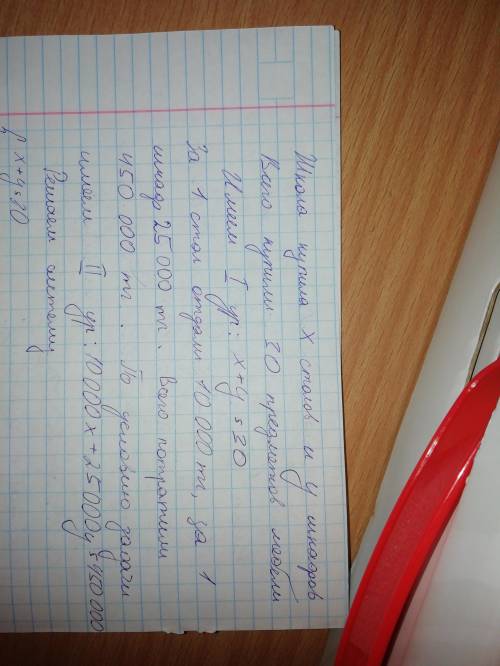 Школа купила х столов и у шкафов
Всего купили 30 предметов мебели
Имеем I ур: x+y=30
За 1 стол отдали 10 000 тг, за 1
шкаф 25 000 тг. Всего потратили
450 000 тг. По условию задачи
имеем II ур: 10000x+25000y=450000
Решаем систему
{ x+y=30